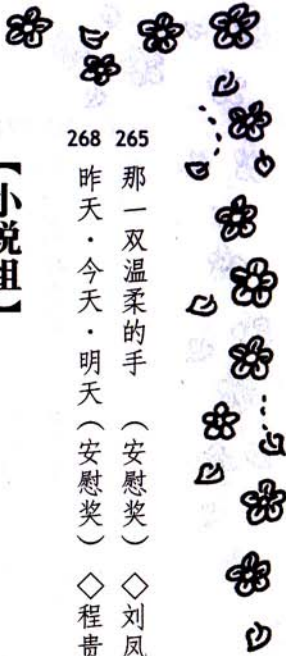 265 那一双温柔的手 （安慰奖） ◇刘凤
268 昨天·今天·明天（安慰奖） ◇程贵
【小说组】